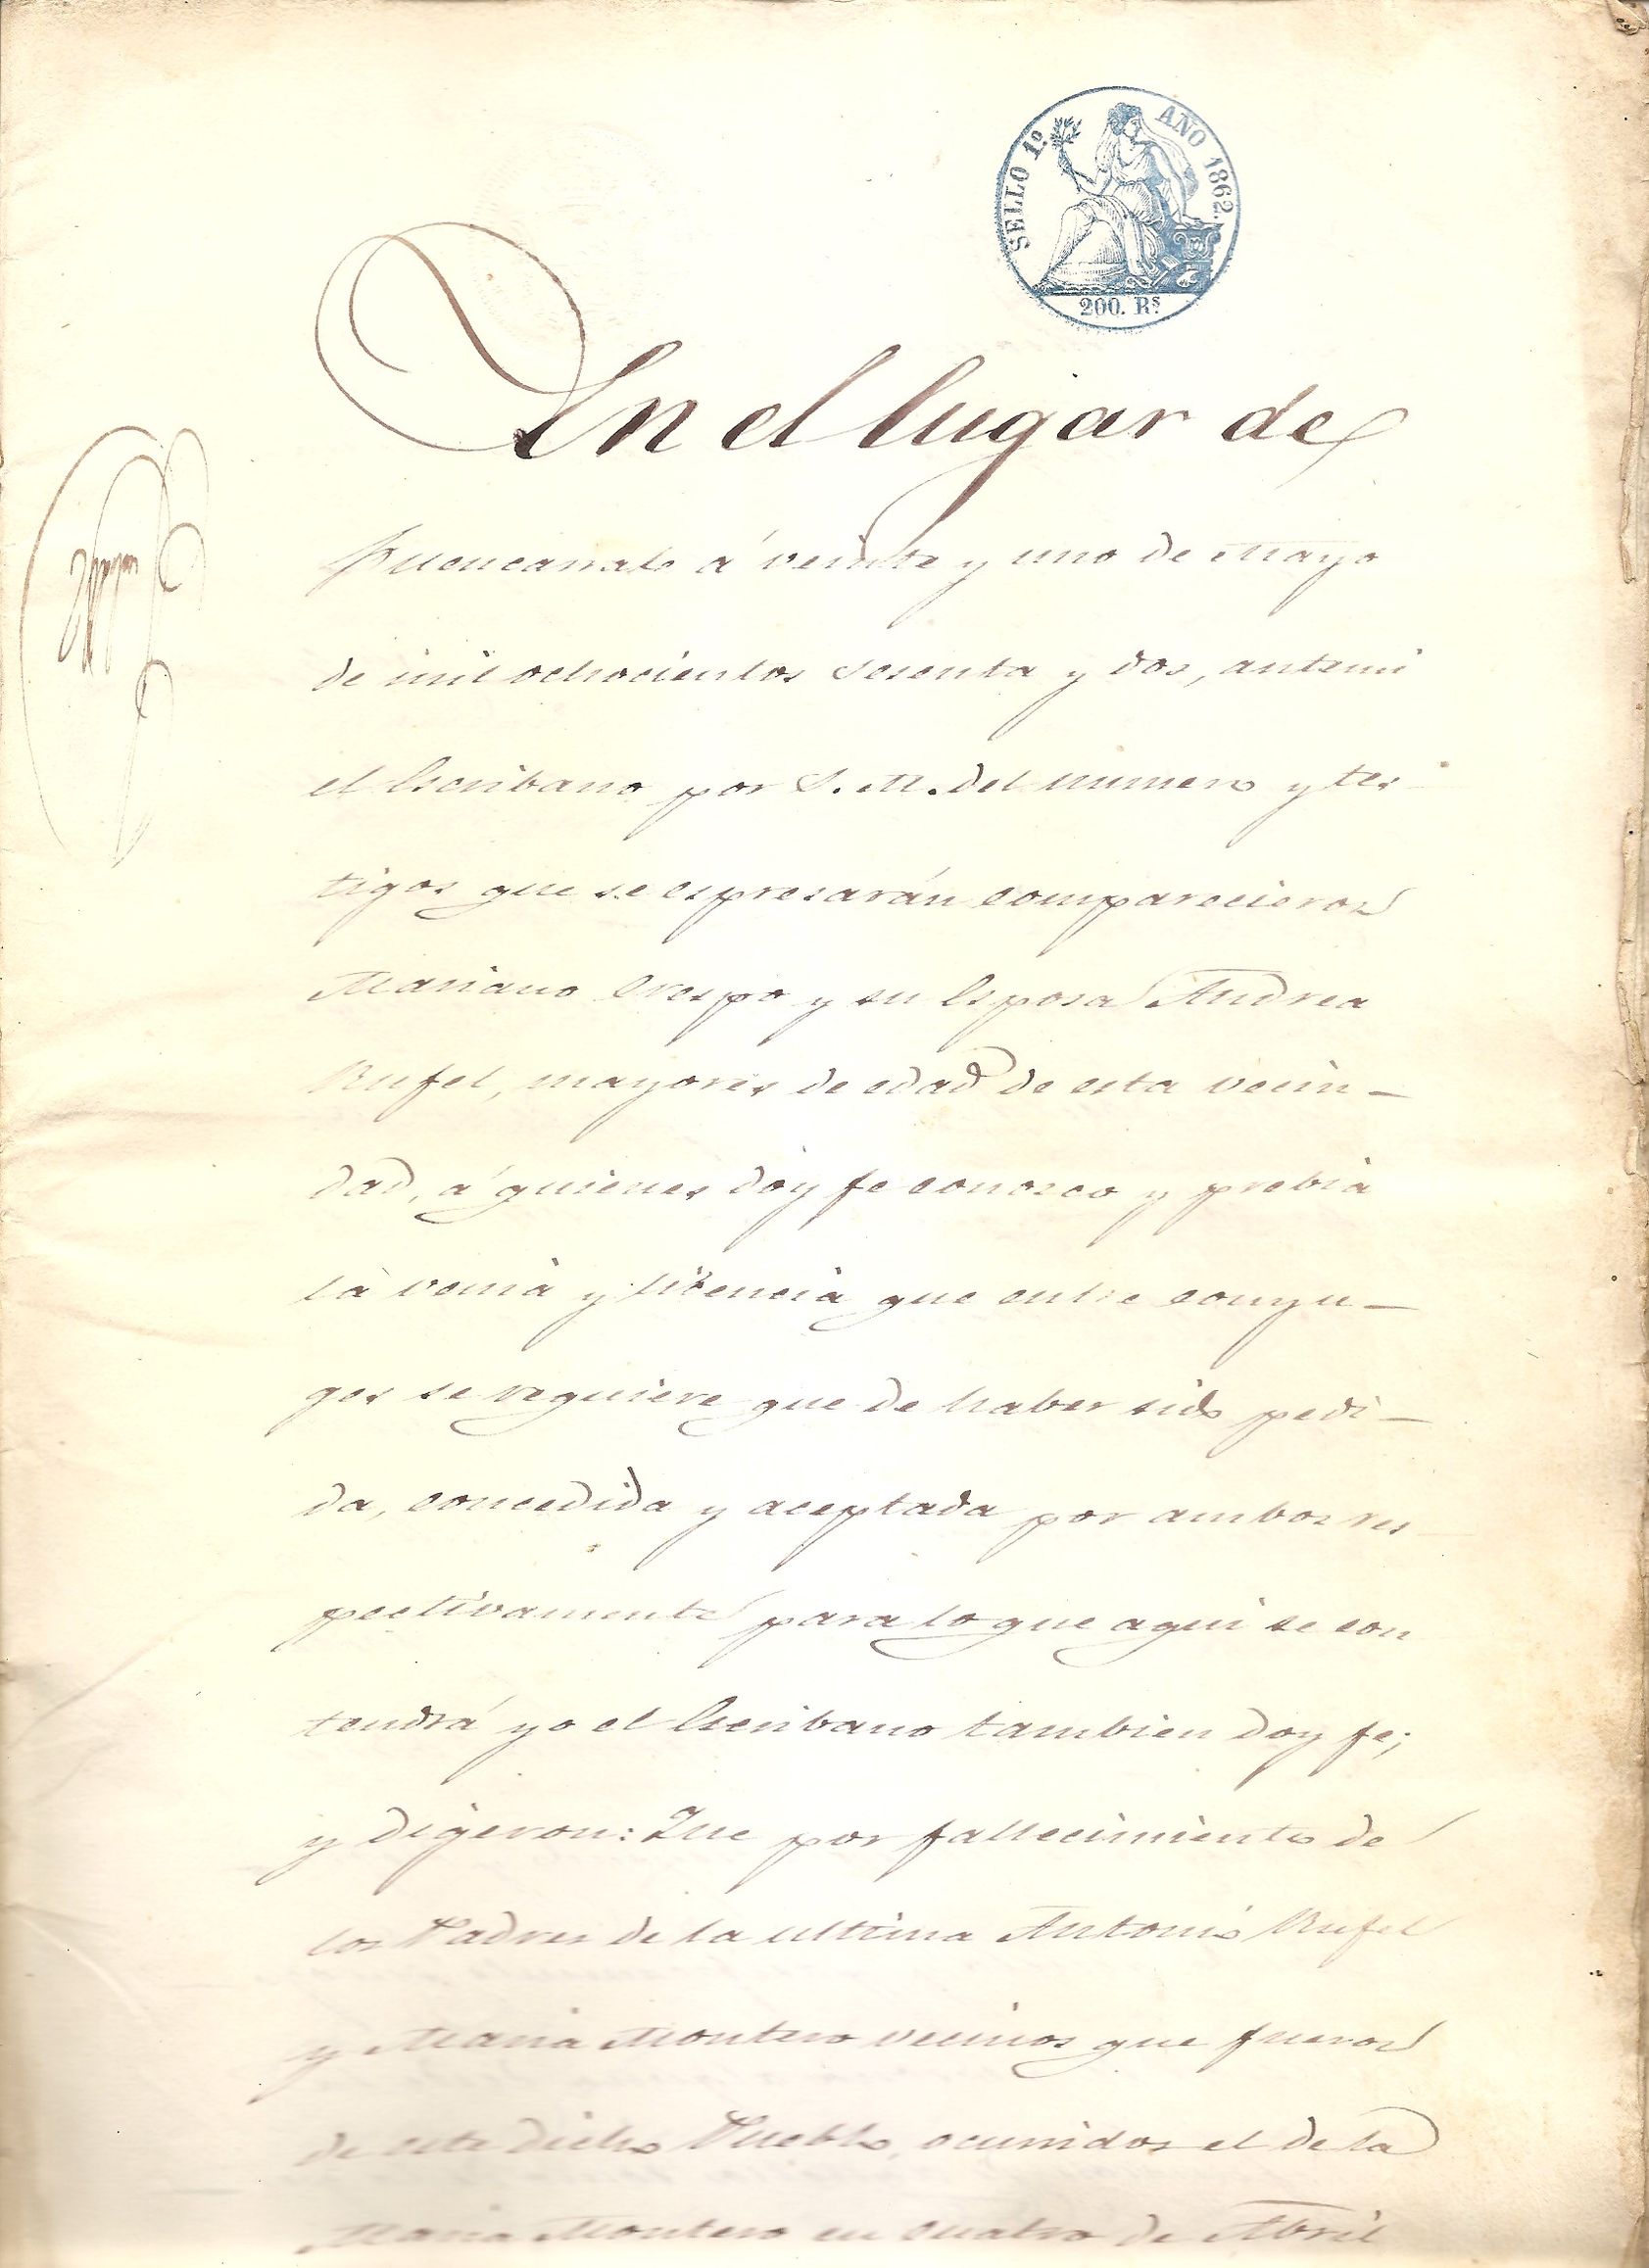 SELLO 1º AÑO 1862.
200. Rˢ
En el lugar de
Fuencarral á veinte y uno de Mayo
de mil ochocientos sesenta y dos, antemi
el Escribano por S. M. del numero y tes
tigos que se espresarán comparecieron
Mariano Crespo y su Esposa Andrea
Rufel, mayores de edad de esta vecin-
dad, á quienes doy fe conozco y prebia
la venia y licencia que entre conyu-
ges se requiere que de haber sido pedi-
da, concedida y aceptada por ambos res
pectivamente para lo que aqui se con
tendrá yo el Escribano tambien doy fe;
y digeron: Que por fallecimiento de
los Padres de la ultima Antonio Rufel
y Maria Montero vecinos que fueron
de este dicho Pueblo, ocurridos el de la
Maria Montero en cuatro de Abril